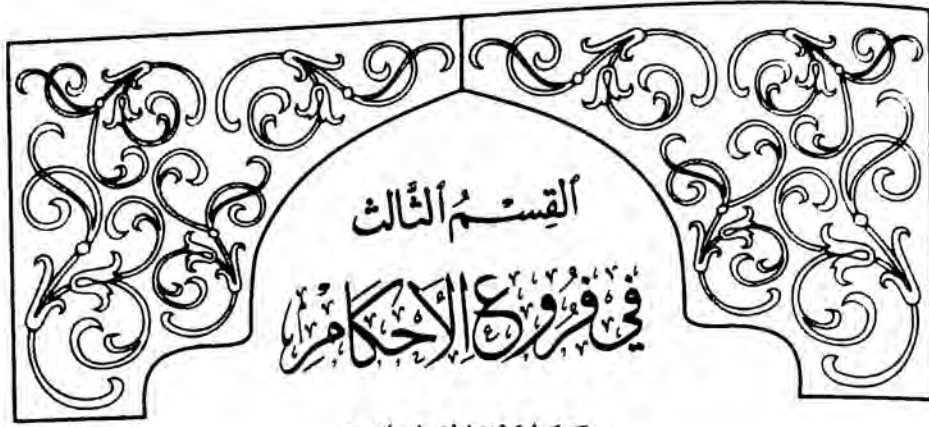 القِسْمُ الثَّالث
في فُرُوعِ الأَحكَامِ